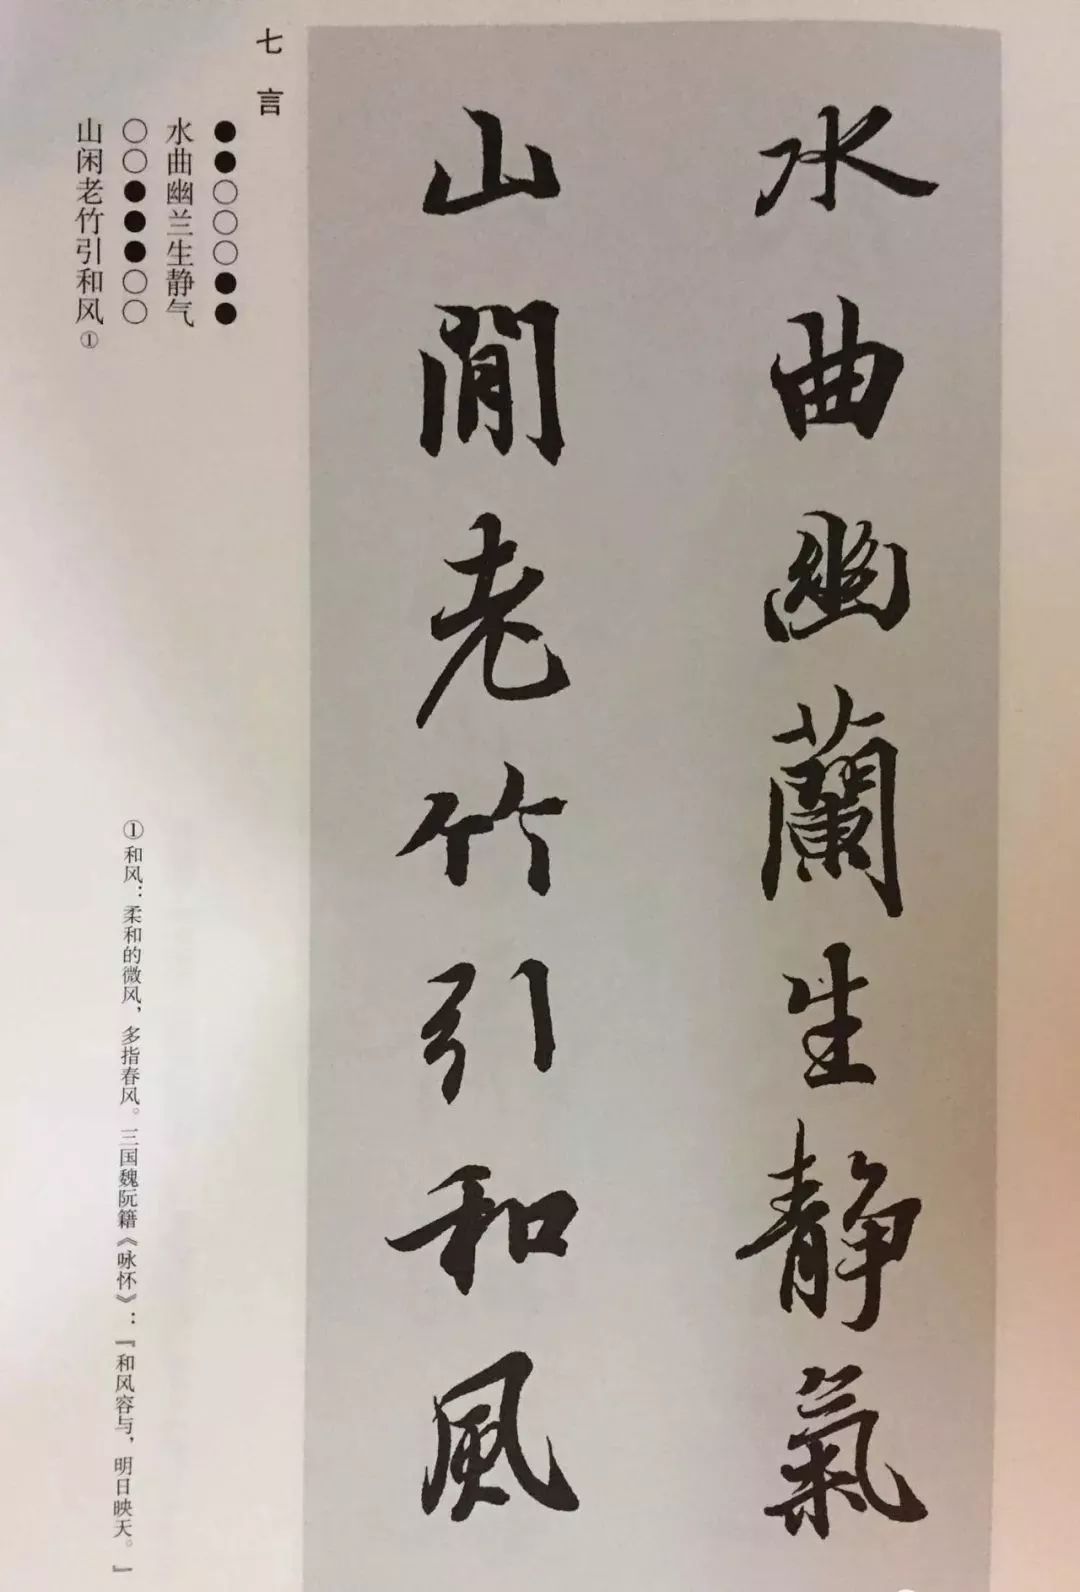 水曲幽蘭生靜氣
山閒老竹引和風
七言
●●○○○●●
水曲幽兰生静气
○○●●●○○
山闲老竹引和风①
①和风：柔和的微风，多指春风。三国魏阮籍《咏怀》：『和风容与，明日映天。』